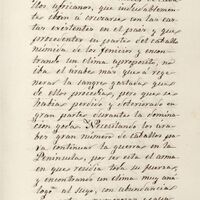 llos africanos, que indudablemente
bieron á cruzarse con las cas
tas existentes en el pais y que
procedentes en parte del caballo
númida de los fenicios y encon
trando un clima apropósito, no
ble el arabes mas que á rege
nerar la sangre gastada que
de ellos procedia, pero que se
habia perdido y deteriorado en
gran parte durante la domina
ción goda. Necesitando los ára
bes gran número de caballos pa
ra continuar la guerra en la
Península, por ser esta el arma
en que residia toda su fuerza,
y encontrando un clima muy aná
logo al suyo, con abundancia